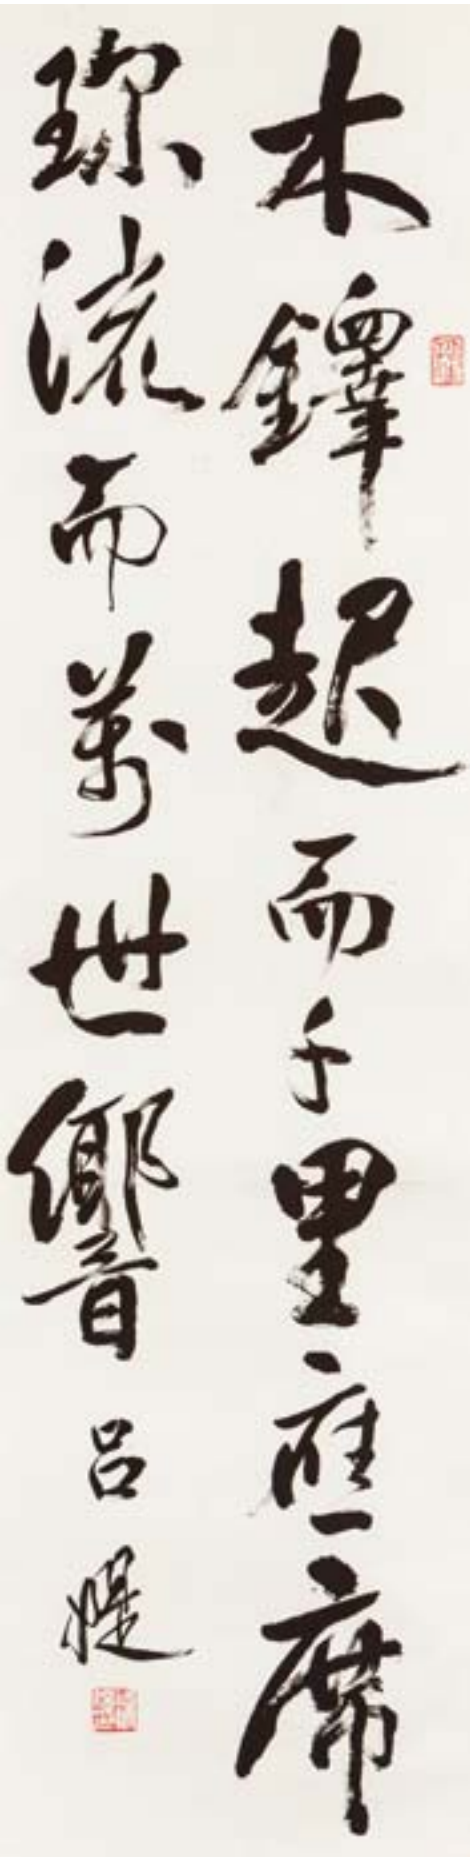 木鐸起而千里應席
珍流而萬世響
呂媞